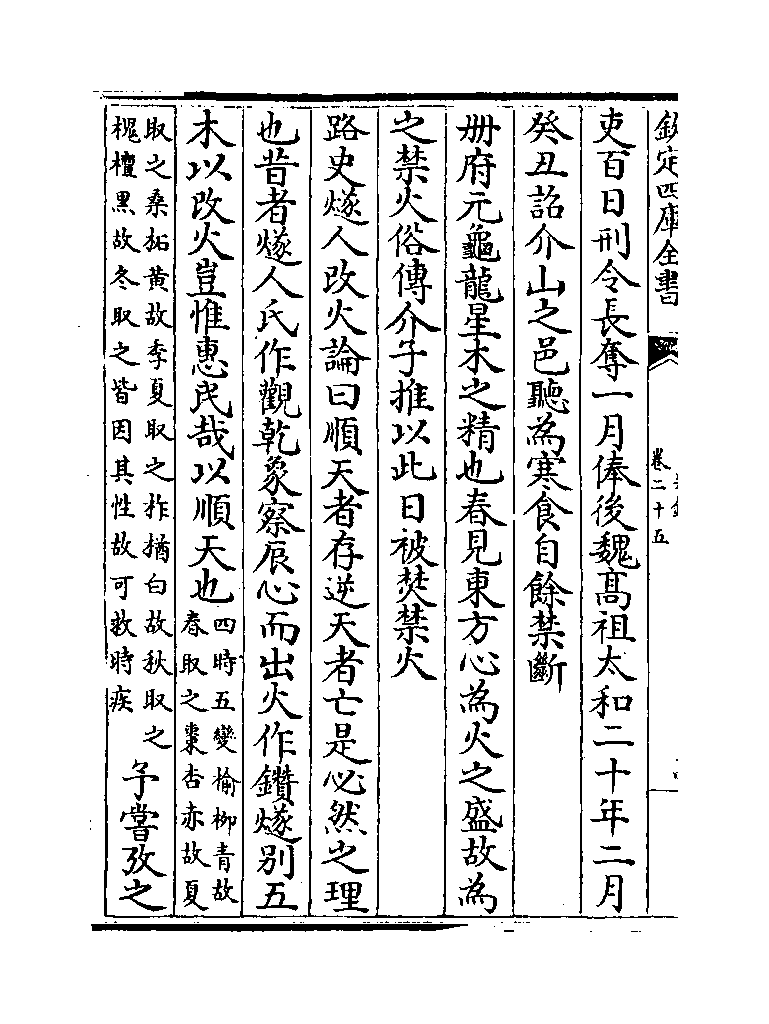 欽定四庫全書
卷二十五
吏百日刑令長奪一月俸後魏髙祖太和二十年二月
癸丑詔介山之邑聽為寒食自餘禁斷
册府元龜龍星木之精也春見東方心為火之盛故為
之禁火俗傳介子推以此日被焚禁火
路史燧人改火論曰順天者存逆天者亡是必然之理
也昔者燧人氏作觀乾象察辰心而出火作鑽燧别五
木以改火豈惟惠民哉以順天也四時五變榆柳青故春取之棗杏赤故夏
取之桑柘黄故季夏取之柞楢白故秋取之槐檀黒故冬取之皆因其性故可救時疾予嘗攷之